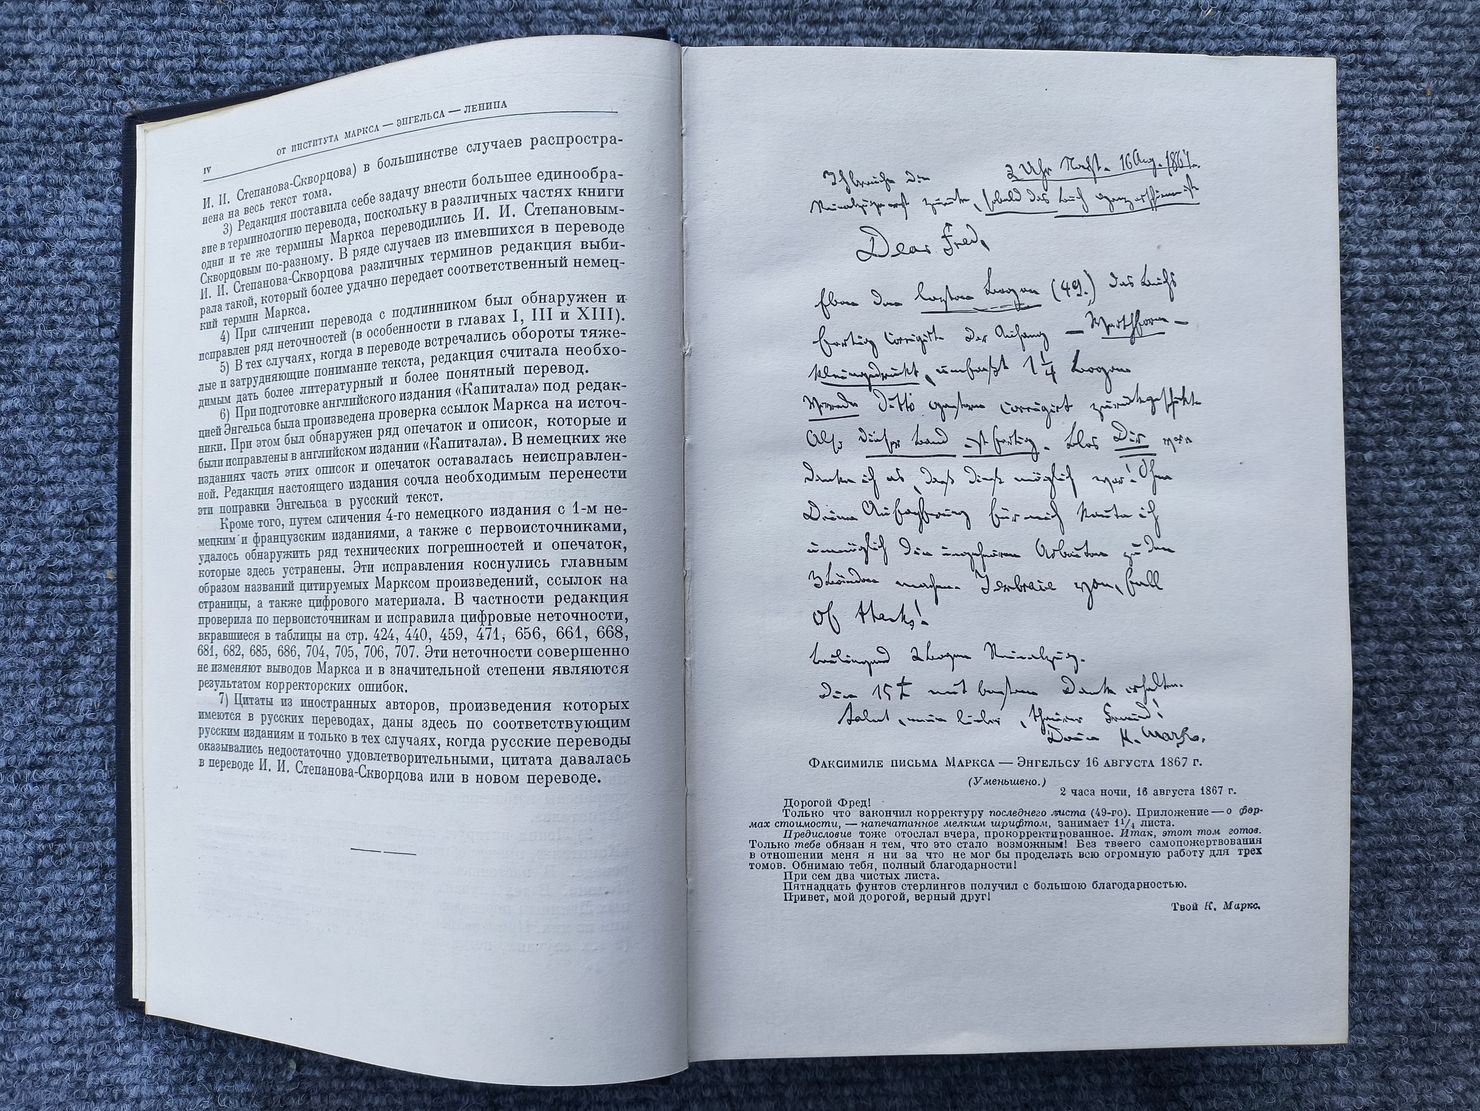 IV
ОТ ИНСТИТУТА МАРКСА — ЭНГЕЛЬСА — ЛЕНИНА
И. И. Степанова-Скворцова) в большинстве случаев распростра-
нена на весь текст тома.
3) Редакция поставила себе задачу внести большее единообра-
зие в терминологию перевода, поскольку в различных частях книги
одни и те же термины Маркса переводились И. И. Степановым-
Скворцовым по-разному. В ряде случаев из имевшихся в переводе
И. И. Степанова-Скворцова различных терминов редакция выби-
рала такой, который более удачно передает соответственный немец-
кий термин Маркса.
4) При сличении перевода с подлинником был обнаружен и
исправлен ряд неточностей (в особенности в главах I, III и XIII).
5) В тех случаях, когда в переводе встречались обороты тяже-
лые и затрудняющие понимание текста, редакция считала необхо-
димым дать более литературный и более понятный перевод.
6) При подготовке английского издания «Капитала» под редак-
цией Энгельса была произведена проверка ссылок Маркса на источ-
ники. При этом был обнаружен ряд опечаток и описок, которые и
были исправлены в английском издании «Капитала». В немецких же
изданиях часть этих описок и опечаток оставалась неисправлен-
ной. Редакция настоящего издания сочла необходимым перенести
эти поправки Энгельса в русский текст.
Кроме того, путем сличения 4-го немецкого издания с 1-м не-
мецким и французским изданиями, а также с первоисточниками,
удалось обнаружить ряд технических погрешностей и опечаток,
которые здесь устранены. Эти исправления коснулись главным
образом названий цитируемых Марксом произведений, ссылок на
страницы, а также цифрового материала. В частности редакция
проверила по первоисточникам и исправила цифровые неточности,
вкравшиеся в таблицы на стр. 424, 440, 459, 471, 656, 661, 668,
681, 682, 685, 686, 704, 705, 706, 707. Эти неточности совершенно
не изменяют выводов Маркса и в значительной степени являются
результатом корректорских ошибок.
7) Цитаты из иностранных авторов, произведения которых
имеются в русских переводах, даны здесь по соответствующим
русским изданиям и только в тех случаях, когда русские переводы
оказывались недостаточно удовлетворительными, цитата давалась
в переводе И. И. Степанова-Скворцова или в новом переводе.
2 Uhr Nacht. 16 Aug. 1867.
Dear Fred,
Eben den letzten Bogen (49.) des Buchs
fertig corrigirt. Der Anhang — Werthform —
kleingedruckt, umfaßt 1 1/4 Bogen.
Vorrede ditto gestern corrigirt zurückgeschickt.
Also dieser Band ist fertig. Blos Dir ver-
danke ich es, daß dieß möglich war! Ohne
Deine Aufopfrung für mich konnte ich
unmöglich die ungeheuren Arbeiten zu den
3 Bänden machen. I embrace you, full
of thanks!
Beiliegend 2 Bogen Reinabzug.
Die 15 £ mit bestem Dank erhalten.
Salut, mein lieber, theurer Freund!
Dein K. Marx.
ФАКСИМИЛЕ ПИСЬМА МАРКСА — ЭНГЕЛЬСУ 16 АВГУСТА 1867 г.
(Уменьшено.)
2 часа ночи, 16 августа 1867 г.
Дорогой Фред!
Только что закончил корректуру последнего листа (49-го). Приложение — о фор-
мах стоимости, — напечатанное мелким шрифтом, занимает 1 1/4 листа.
Предисловие тоже отослал вчера, прокорректированное. Итак, этот том готов.
Только тебе обязан я тем, что это стало возможным! Без твоего самопожертвования
в отношении меня я ни за что не мог бы проделать всю огромную работу для трех
томов. Обнимаю тебя, полный благодарности!
При сем два чистых листа.
Пятнадцать фунтов стерлингов получил с большою благодарностью.
Привет, мой дорогой, верный друг!
Твой К. Маркс.